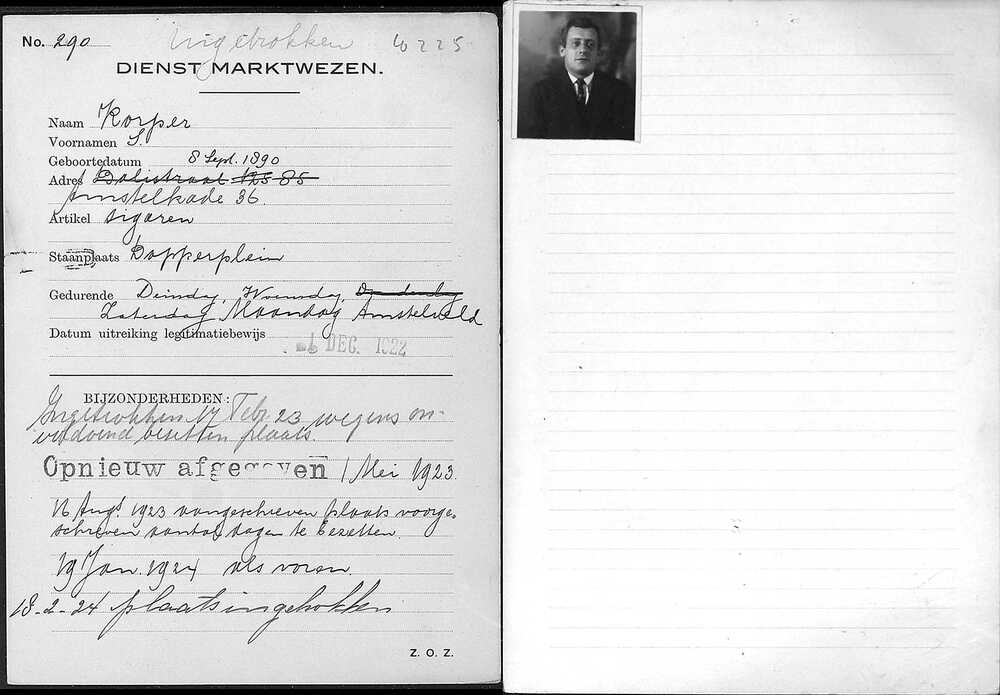 No. 290 Ingetrokken 4225
DIENST MARKTWEZEN.
Naam Korper
Voornamen S.
Geboortedatum 8 Sept. 1890
Adres Balistraat 125 85
Amstelkade 36.
Artikel sigaren
Staanplaats Dapperplein
Gedurende Dinsdag, Woensdag, Donderdag
Zaterdag, Maandag Amstelveld
Datum uitreiking legitimatiebewijs
DEC. 1922
BIJZONDERHEDEN:
Ingetrokken 17 Febr. 23 wegens on-
voldoend bezetten plaats.
Opnieuw afgegeven 1 Mei 1923.
16 Augt. 1923 aangeschreven plaats voorge-
schreven aantal dagen te bezetten.
19 Jan. 1924 als voren.
18-2-24 plaats ingetrokken
Z. O. Z.